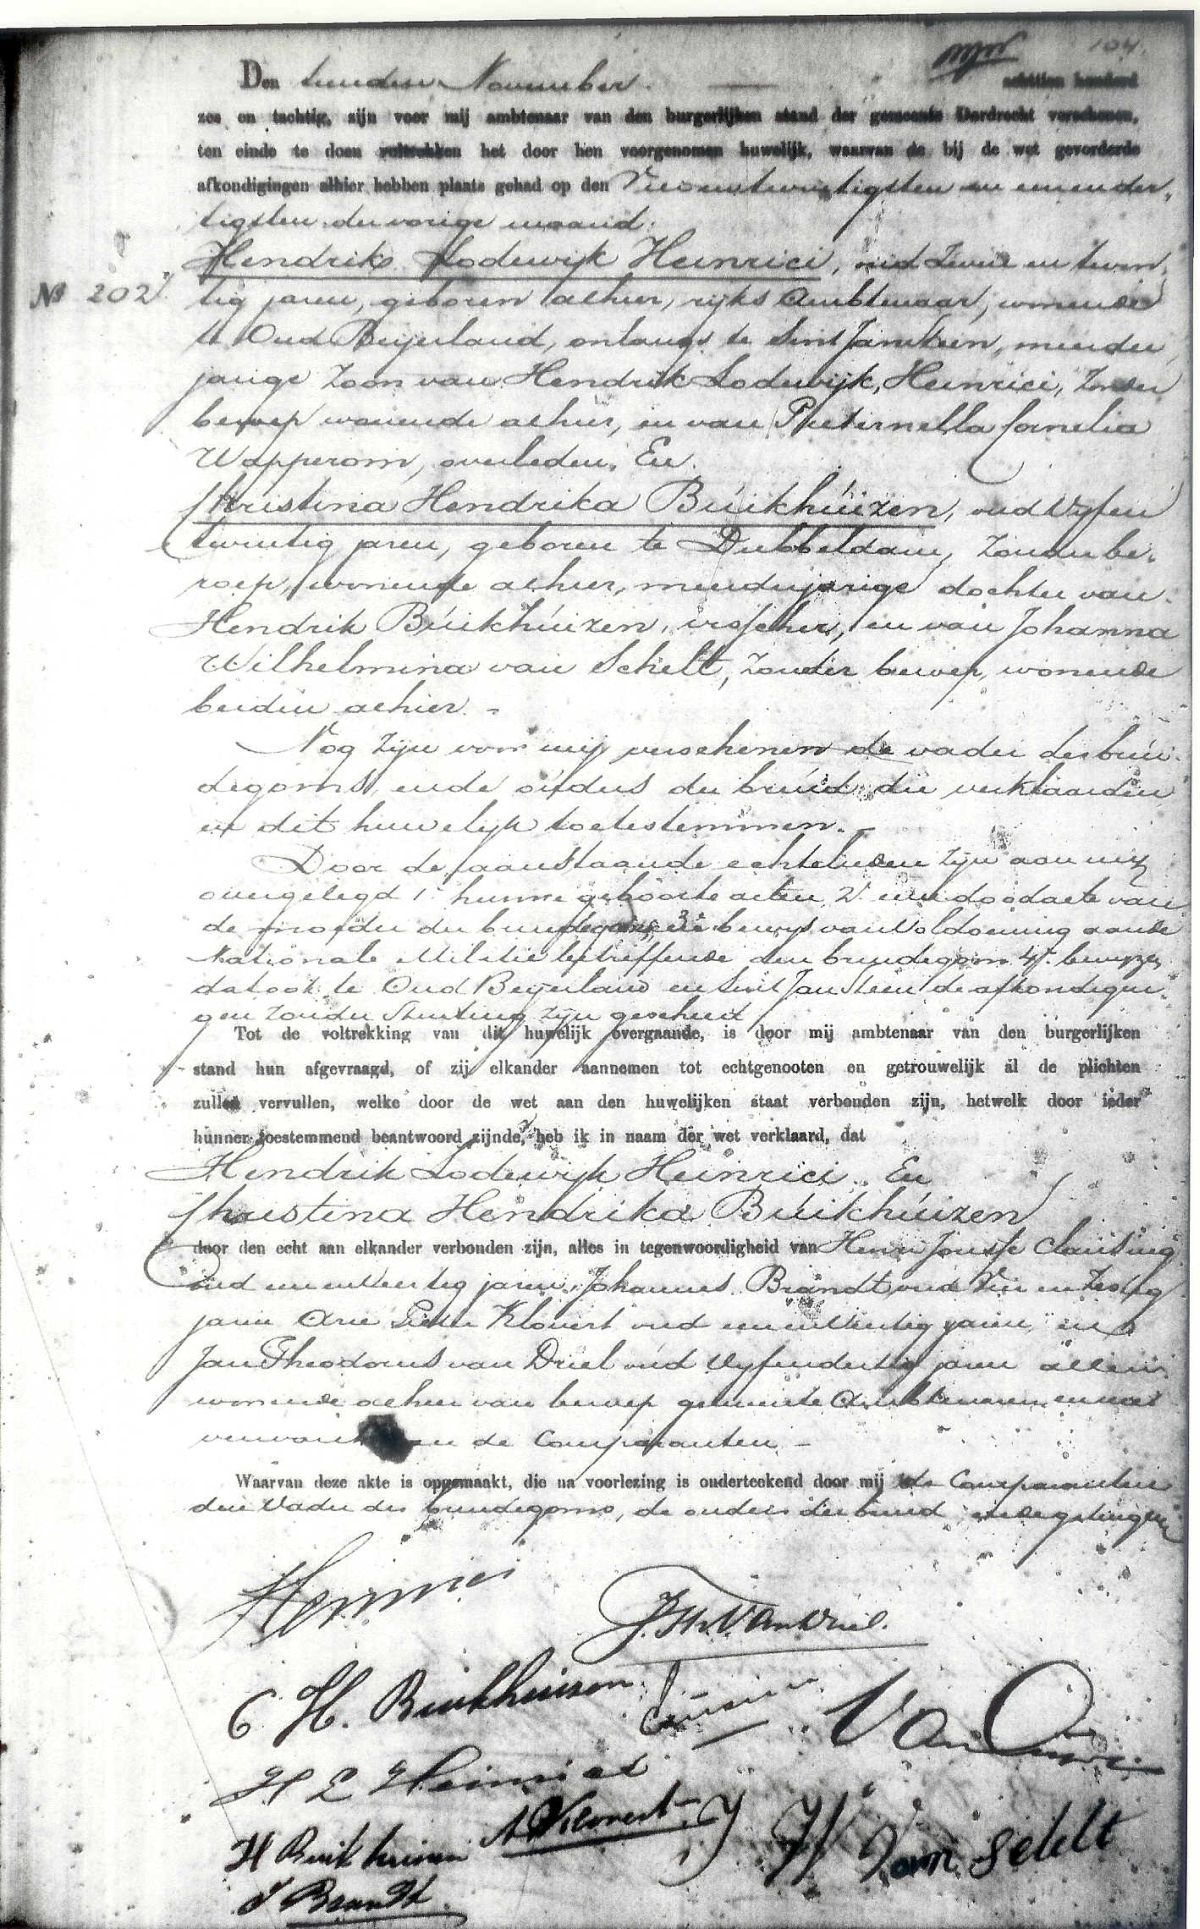 104.
Den tienden November. achttien honderd
zes en tachtig, zijn voor mij ambtenaar van den burgerlijken stand der gemeente Dordrecht verschenen,
ten einde te doen voltrekken het door hen voorgenomen huwelijk, waarvan de bij de wet gevorderde
afkondigingen alhier hebben plaats gehad op den Vierentwintigsten en eenender,
tigsten der vorige maand.
Hendrik Lodewijk Heinrici, oud Zeven en twin,
No 202. tig jaren, geboren alhier, rijks Ambtenaar, wonende
te Oud Beijerland, onlangs te Sint Jansteen, meerder
jarige Zoon van Hendrik Lodewijk, Heinrici, Zonder
beroep wonende alhier, en van Pieternella Cornelia
Wapperom, overleden. En
Christina Hendrika Buikhuizen, oud Vijfen
twintig jaren, geboren te Dubbeldam, Zonder be.
roep, wonende alhier, meerderjarige dochter van
Hendrik Buikhuizen, visscher, en van Johanna
Wilhelmina van Schelt, Zonder beroep, wonende
beiden alhier. -
Nog Zijn voor mij verschenen de vader des brui.
degoms, en de ouders der bruid die verklaarden
in dit huwelijk toetestemmen. -
Door de aanstaande echtelieden Zijn aan mij
overgelegd 1o hunne geboorte acten 2o eene doodacte van
de moeder des bruidegoms, 3e bewijs van Voldoening aan de
Nationale Militie betreffende den bruidegom 4o bewijzen
dat ook te Oud Beijerland en Sint Jan Steen de afkondigin.
gen Zonder Stuiting Zijn geschied
Tot de voltrekking van dit huwelijk overgaande, is door mij ambtenaar van den burgerlijken
stand hun afgevraagd, of zij elkander aannemen tot echtgenooten en getrouwelijk al de plichten
zullen vervullen, welke door de wet aan den huwelijken staat verbonden zijn, hetwelk door ieder
hunner toestemmend beantwoord zijnde, heb ik in naam der wet verklaard, dat
Hendrik Lodewijk Heinrici. En
Christina Hendrika Buikhuizen
door den echt aan elkander verbonden zijn, alles in tegenwoordigheid van Henri Clausing
oud een en Veertig jaren, Johannes Brandt, oud Vier en Zestig
jaren Arie Klovert oud een en Veertig jaren, en
Jan Theodorus van Driel oud Vijfendertig jaren allen
wonende alhier van beroep gemeente Ambtenaren en niet
verwant aan de Comparanten. -
Waarvan deze akte is opgemaakt, die na voorlezing is onderteekend door mij de Comparanten
den Vader des bruidegoms, de ouders der bruid en de getuigen
Heinrici
J. Th. Van Driel.
C H. Buikhuizen
H L Heinrici
A Klovert
H Buikhuizen
J W van schelt
J Brandt